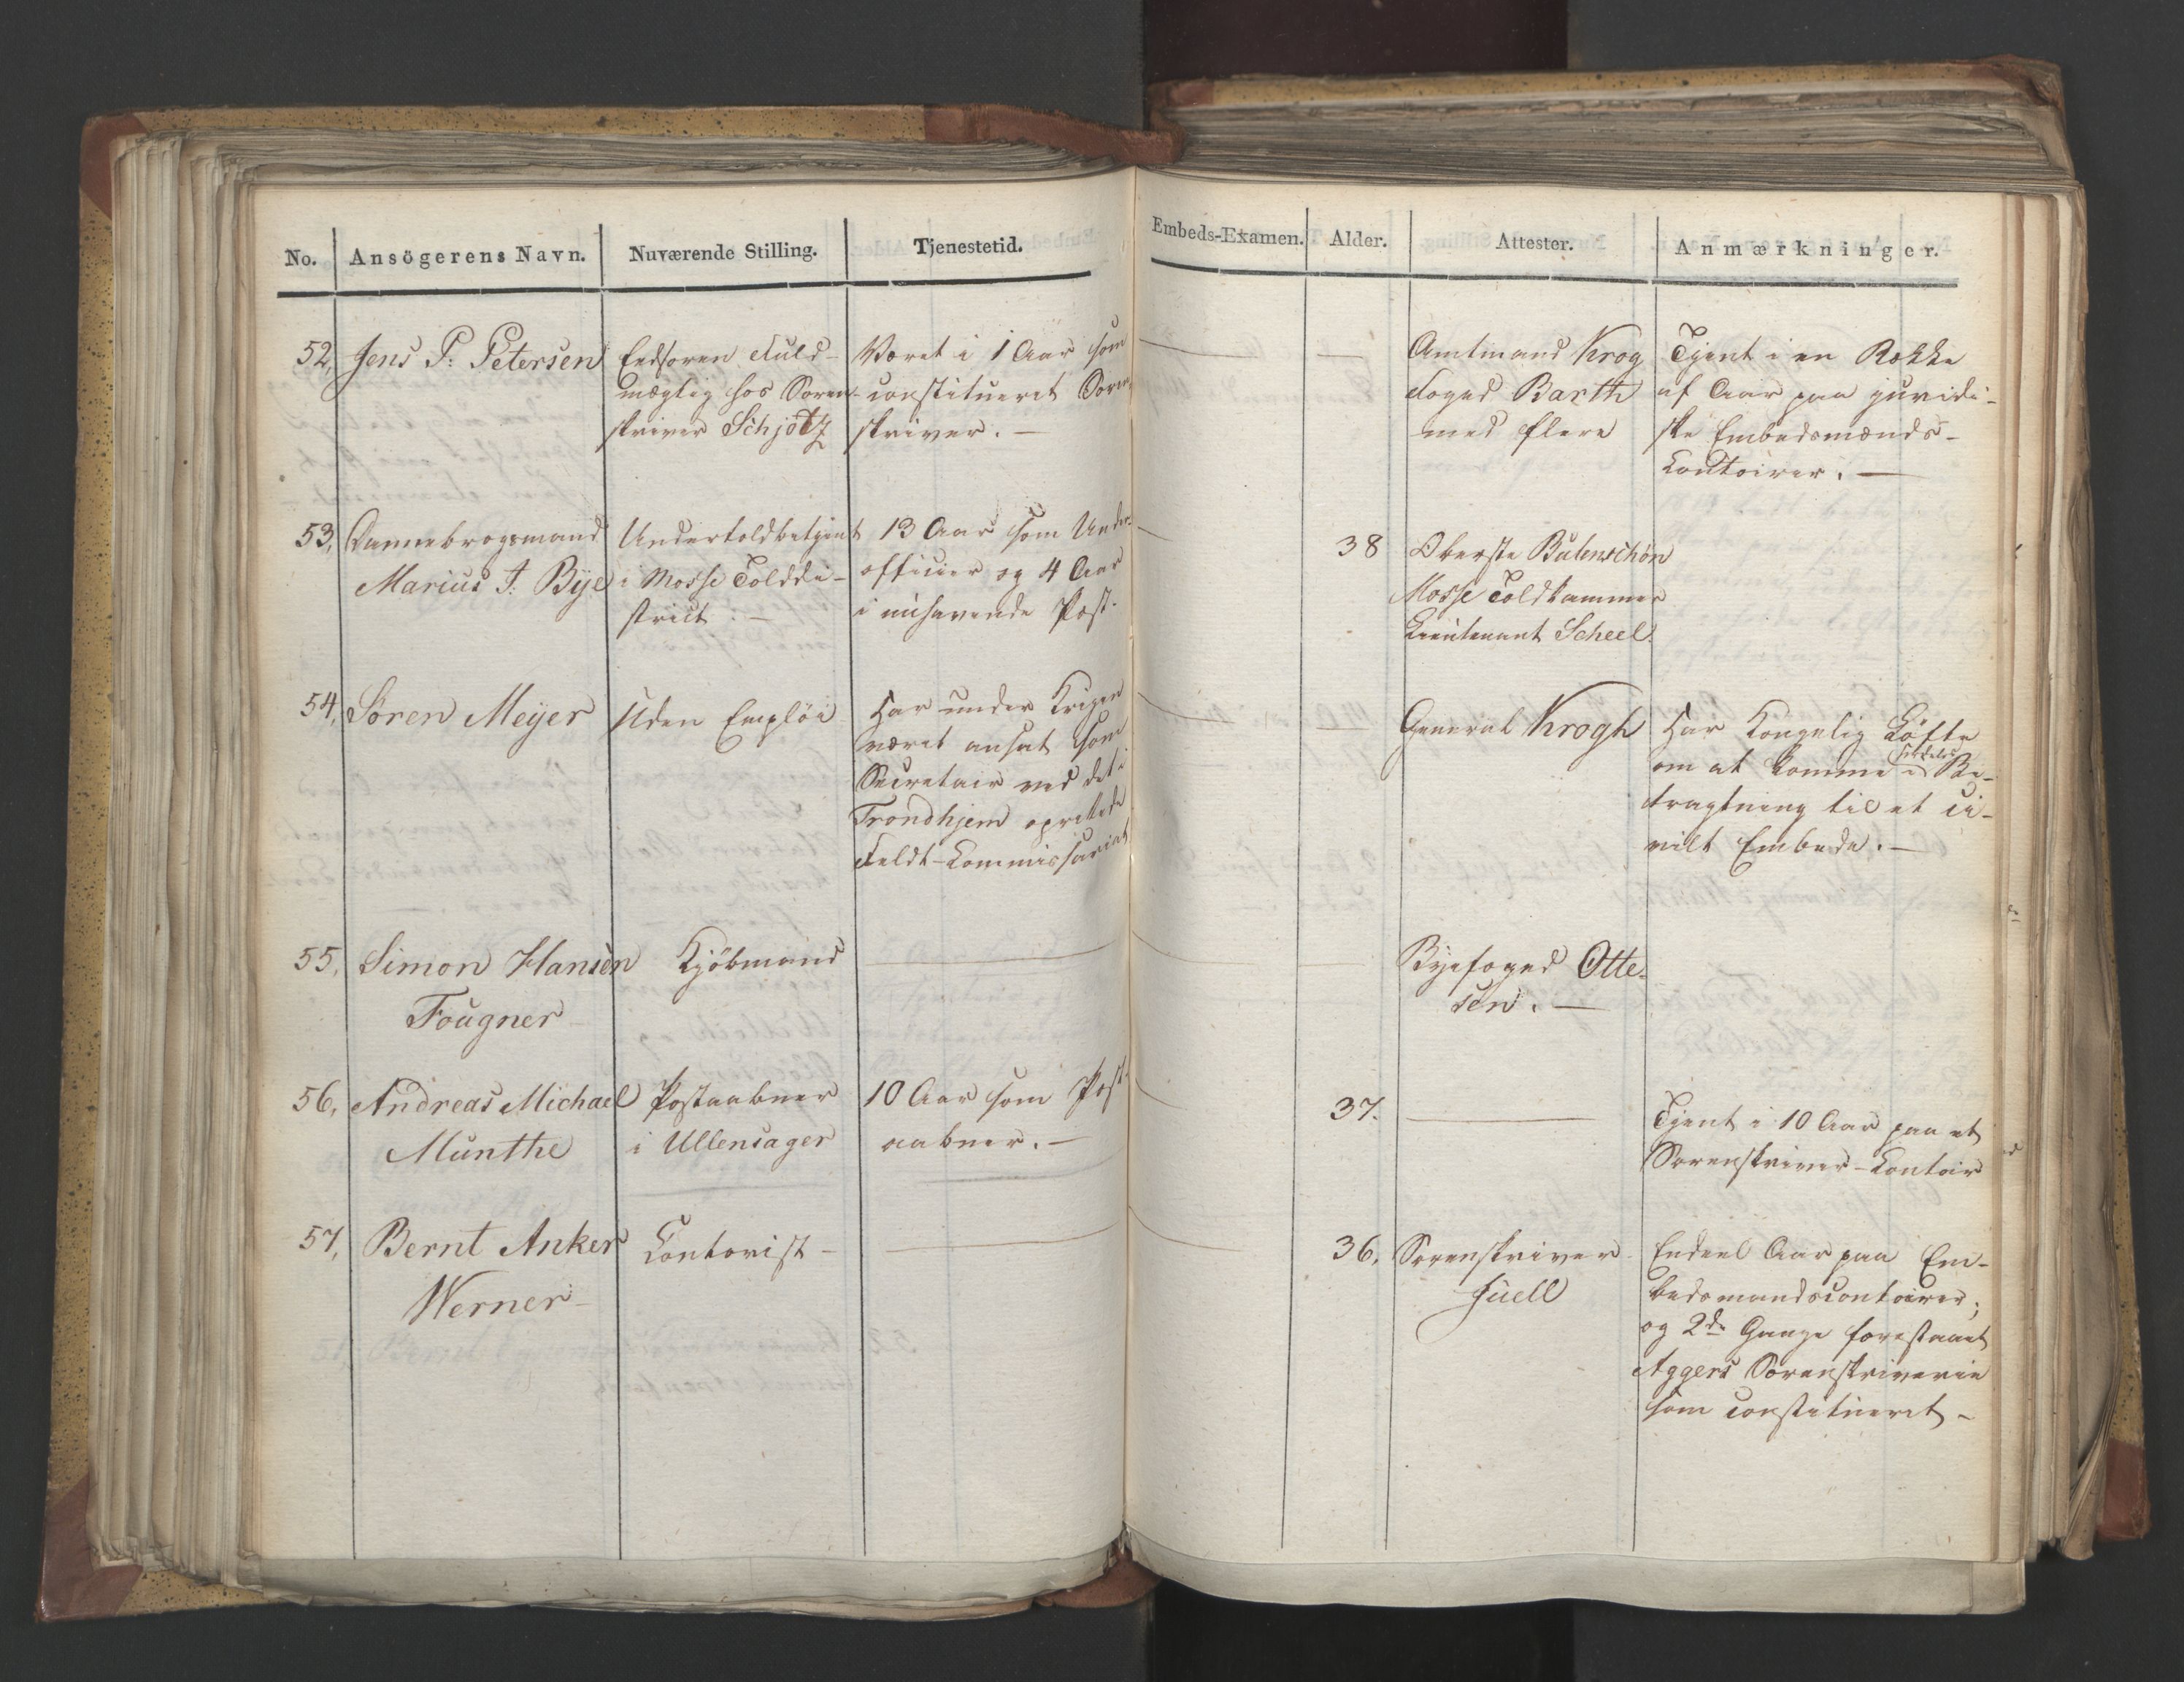 No. Ansögerens Navn. Nuværende Stilling. Tjenestetid. Embeds-Examen. Alder. Attester. Anmærkninger.
52, Jens P: Petersen
Eedsoren Fuld-
mægtig hos Soren-
skriver Schjötz
Været i 1 Aar som
constitueret Soren
skriver. —
— —
Amtmand Krog
Foged Barth
med flere
Tjent i en Række
af Aar paa juridi-
ske Embedsmænds-
Contoirer. —
53, Dannebrogsmand
Marius F: Bye
Undertoldbetjent
i Mosse Tolddi-
strict. —
13 Aar som Under-
officier og 4 Aar
i nuhavende Post.
—
38
Oberste Bulenschön
Mosse Toldkammer
Lieutenant Scheel.
54, Sören Meyer
Uden Emplöi
Har under Krigen
været ansat som
Secretair ved det i
Trondhjem oprettede
Feldt-Commissariat
— —
General Krogh
Har Kongelig Löfte
om at komme i særdeles Be-
tragtning til et ci-
vilt Embede. —
55, Simon Hansen
Fougner
Kjöbmand
— —
Byefoged Otte-
sen. —
56, Andreas Michael
Munthe
Postaabner
i Ullensager
10 Aar som Post-
aabner. —
—
37.
—
Tjent i 10 Aar paa et
Sorenskriver-Contoir
57, Bernt Anker
Werner
Contorist —
— —
36,
Sorenskriver
Juell
Endeel Aar paa Em-
bedsmandscontoirer;
og 2de Gange forestaaet
Aggers Sorenskriverie
som constitueret —